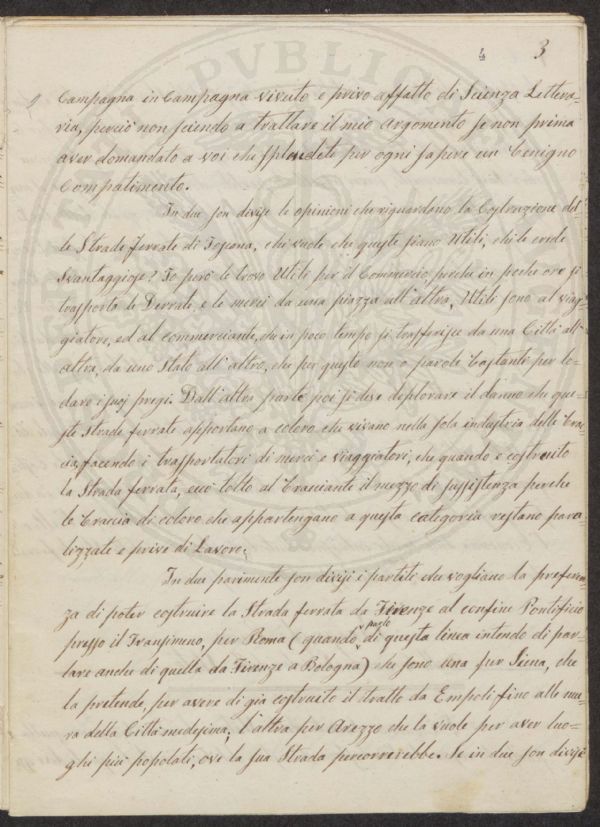 4 3
Campagna in Campagna vivuto e privo affatto di Scienza Lettera-
ria, perciò non sciendo a trattare il mio Argomento se non prima
aver domandato a voi che per ogni sapere un benigno
Compatimento.
In due son divise le opinioni che riguardono la Costruzione del-
le Strade ferrate di Toscana, chi vuole che queste siano Utili, chi le crede
Svantaggiose? Io però le trovo Utili per il Commercio perche in poche ore si
trasporta le Derrate, e le merci da una piazza all'altra, Utili sono al viag-
giatore, ed al commerciante, che in poco tempo si trasferisce da una Città all'
altra, da uno Stato all'altro, che per questo non o parole bastanti per lo-
dare i suoi pregi. Dall'altra parte poi si deve deplorare il danno che que-
ste Strade ferrate apportano a coloro che vivano nella sola industria delle brac-
cia, facendo i trasportatori di merci e viaggiatori, che quando e costruito
la Strada ferrata, ecco tolto al bracciante il mezzo di sussistenza perche
le braccia di coloro che appartengano a questa categoria restano para-
lizzate e prive di Lavoro.
In due parimente son divisi i partiti che vogliano la preferen-
za di poter costruire la Strada ferrata da Firenze al confine Pontificio
presso il Trasimeno, per Roma (quando parlo di questa linea intendo di par-
lare anche di quella da Firenze a Bologna) che sono una per Siena, che
la pretende, per avere di già costruito il tratto da Empoli fino alle mu-
ra della Città medesima, l'altra per Arezzo che la vuole per aver luo-
ghi più popolati, ove la sua Strada percorrerebbe. Se in due son divise